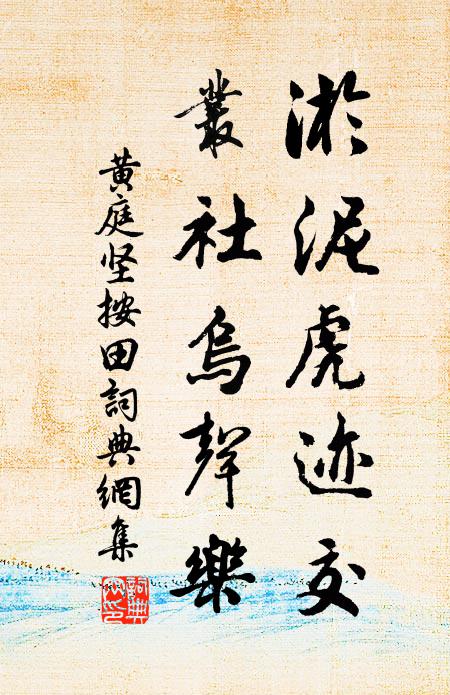 淤泥虎迹交
叢社烏聲樂
黄庭坚按田詞典網集